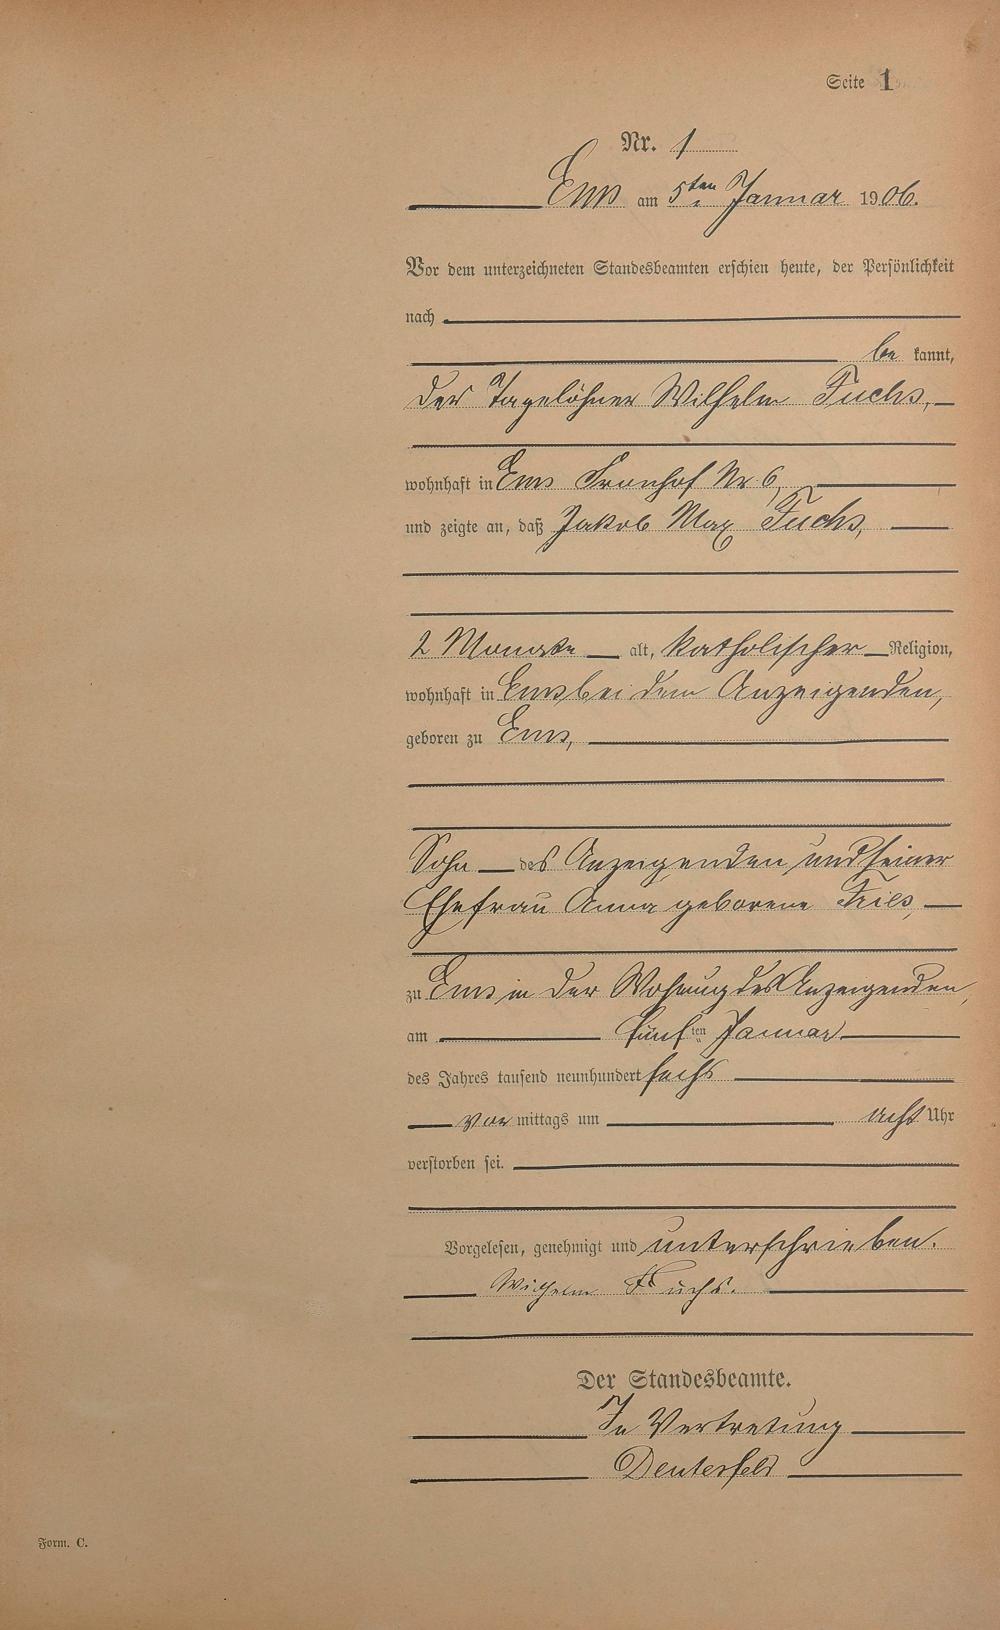 Seite 1
Nr. 1
Ems am 5ten Januar 1906.
Vor dem unterzeichneten Standesbeamten erschien heute, der Persönlichkeit
nach
be kannt,
der Tagelöhner Wilhelm Fuchs,
wohnhaft in Ems Fronhof Nr 6,
und zeigte an, daß Jakob Max Fuchs,
2 Monate alt, katholischer Religion,
wohnhaft in Ems bei dem Anzeigenden,
geboren zu Ems,
Sohn des Anzeigenden und seiner
Ehefrau Anna geborene Fries,
zu Ems in der Wohnung des Anzeigenden,
am fünften Januar
des Jahres tausend neunhundert sechs
vor mittags um acht Uhr
verstorben sei.
Vorgelesen, genehmigt und unterschrieben.
Wilhelm Fuchs.
Der Standesbeamte.
In Vertretung
Form. C.